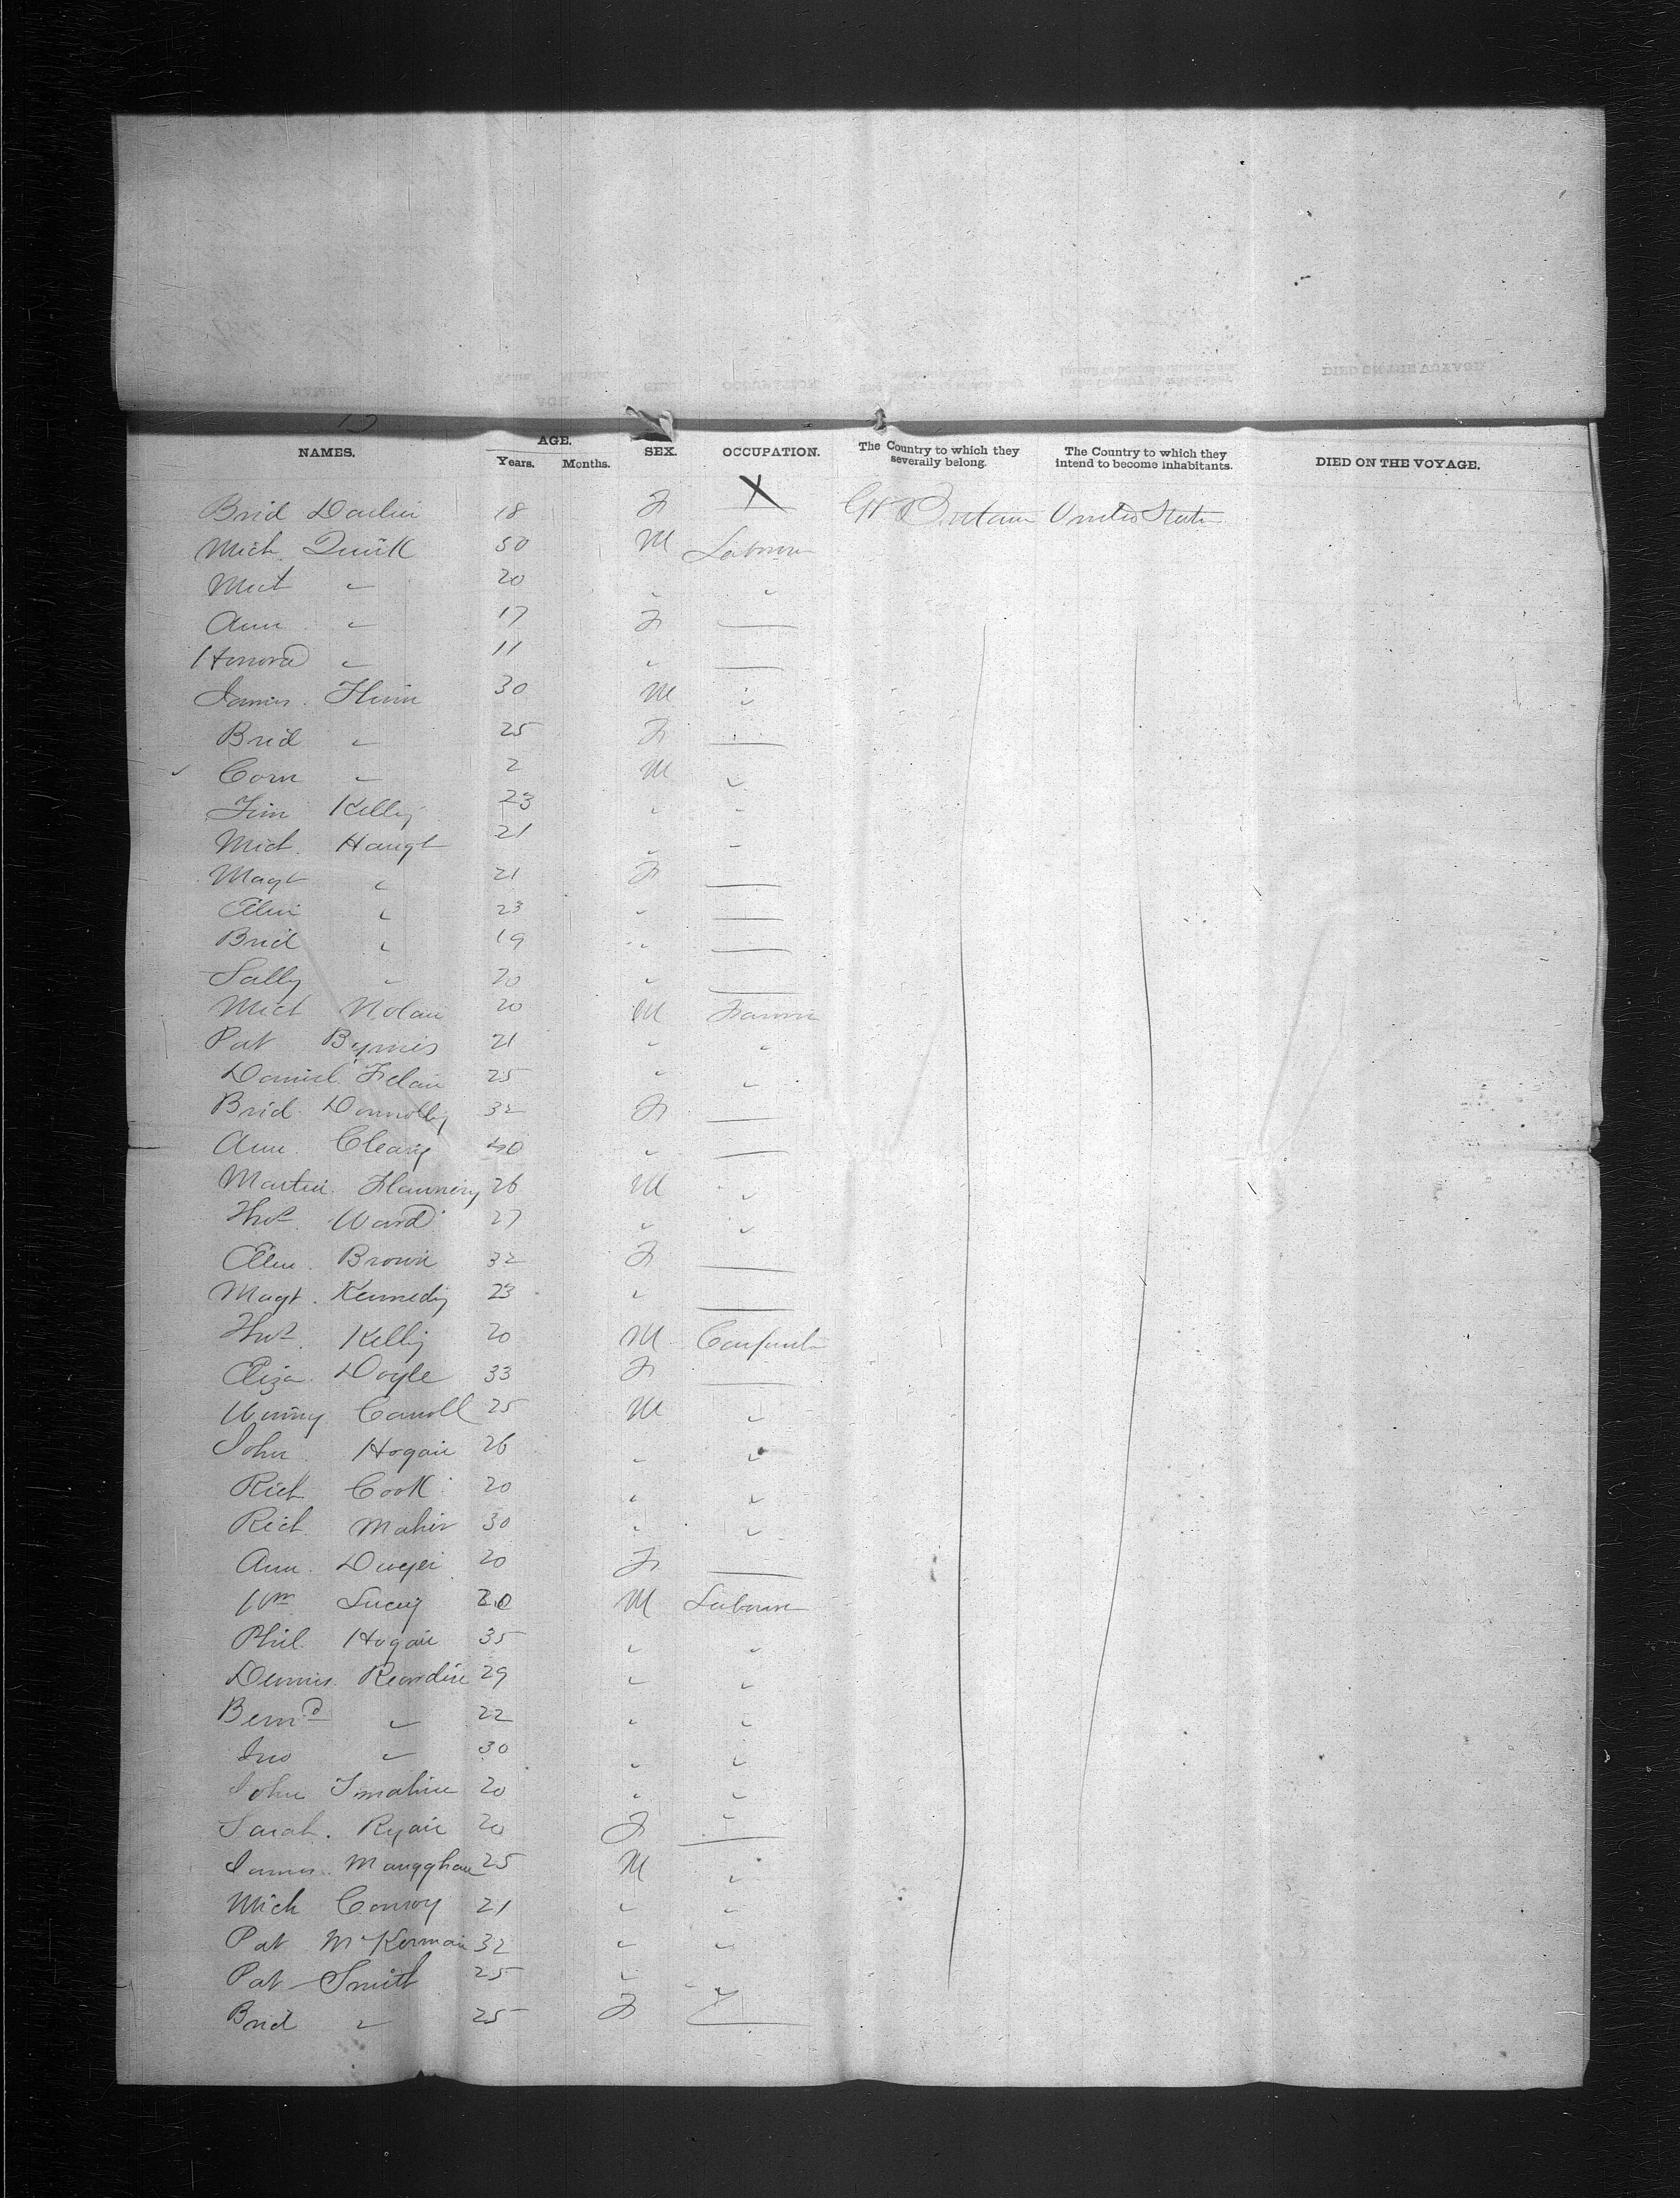 NAMES. AGE. Years. Months. SEX. OCCUPATION. The Country to which they severally belong. The Country to which they intend to become inhabitants. DIED ON THE VOYAGE.
Brid 18 F — Gt Britain United States
Mich. Quirk 50 M Labourer
Mich " 20 " "
Ann " 17 F —
Honora " 11 " —
James Flinn 30 M "
Brid " 25 F —
Corn " 2 M "
Tim Kelly 23 " "
Mich. Haugt 21 " "
Magt " 21 F —
Ellen " 23 " —
Brid " 19 " —
Sally " 20 " —
Mich Nolan 20 M Farmer
Pat Byrnes 21 " "
Daniel Felan 25 " "
Brid. Donnolly 32 F —
Ann. Cleary 40 " —
Martin. Flannery 26 M "
Thos. Ward 27 " "
Ellen. Brown 32 F —
Magt. Kennedy 23 " —
Thos. Kelly 20 M Carpenter
Eliza. Doyle 33 F —
Carroll 25 M "
John Hogan 26 " "
Rich Cook 20 " "
Rich. Maher 30 " "
Ann. Dwyer 20 F —
Wm Lucey 20 M Labourer
Phil. Hogan 35 " "
Dennis. Reardin 29 " "
Bernd " 22 " "
Jno " 30 " "
John 20 " "
Sarah. Ryan 20 F —
James. Mangghan 25 M "
Mich Conroy 21 " "
Pat McKernan 32 " "
Pat Smith 25 " "
Brid " 25 F —